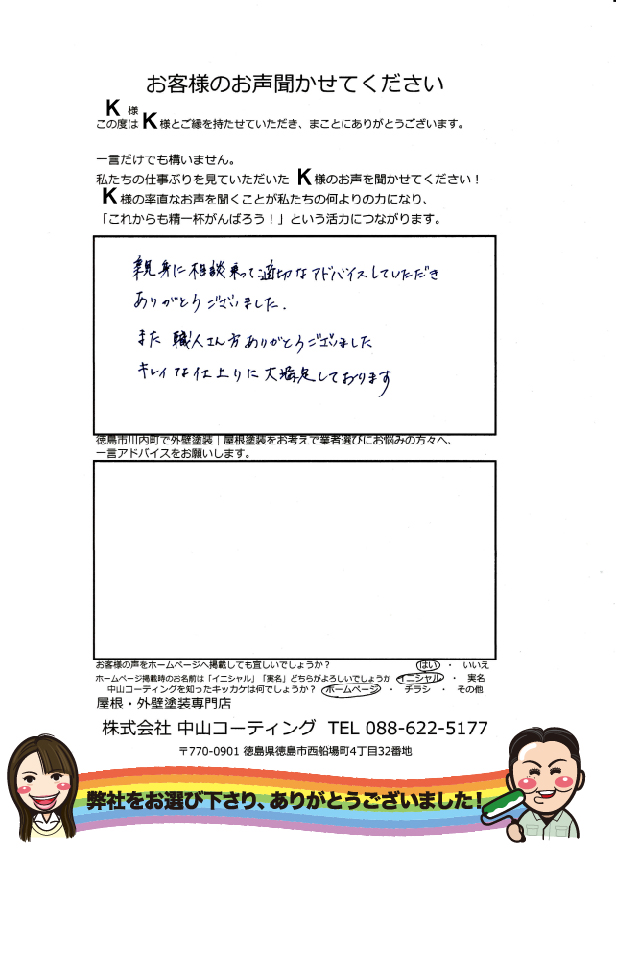 お客様のお声聞かせてください
K 様
この度は K 様とご縁を持たせていただき、まことにありがとうございます。
一言だけでも構いません。
私たちの仕事ぶりを見ていただいた K 様のお声を聞かせてください！
K 様の率直なお声を聞くことが私たちの何よりの力になり、
「これからも精一杯がんばろう！」という活力につながります。
親身に相談乗って適切なアドバイスしていただき
ありがとうございました.
また 職人さん方ありがとうございました
キレイな仕上りに大満足しております
徳島市川内町で外壁塗装｜屋根塗装をお考えで業者選びにお悩みの方々へ、
一言アドバイスをお願いします。
お客様の声をホームページへ掲載しても宜しいでしょうか？ はい ・ いいえ
ホームページ掲載時のお名前は「イニシャル」「実名」どちらがよろしいでしょうか イニシャル ・ 実名
中山コーティングを知ったキッカケは何でしょうか？ ホームページ ・ チラシ ・ その他
屋根・外壁塗装専門店
株式会社 中山コーティング TEL 088-622-5177
〒770-0901 徳島県徳島市西船場町4丁目32番地
弊社をお選び下さり、ありがとうございました！